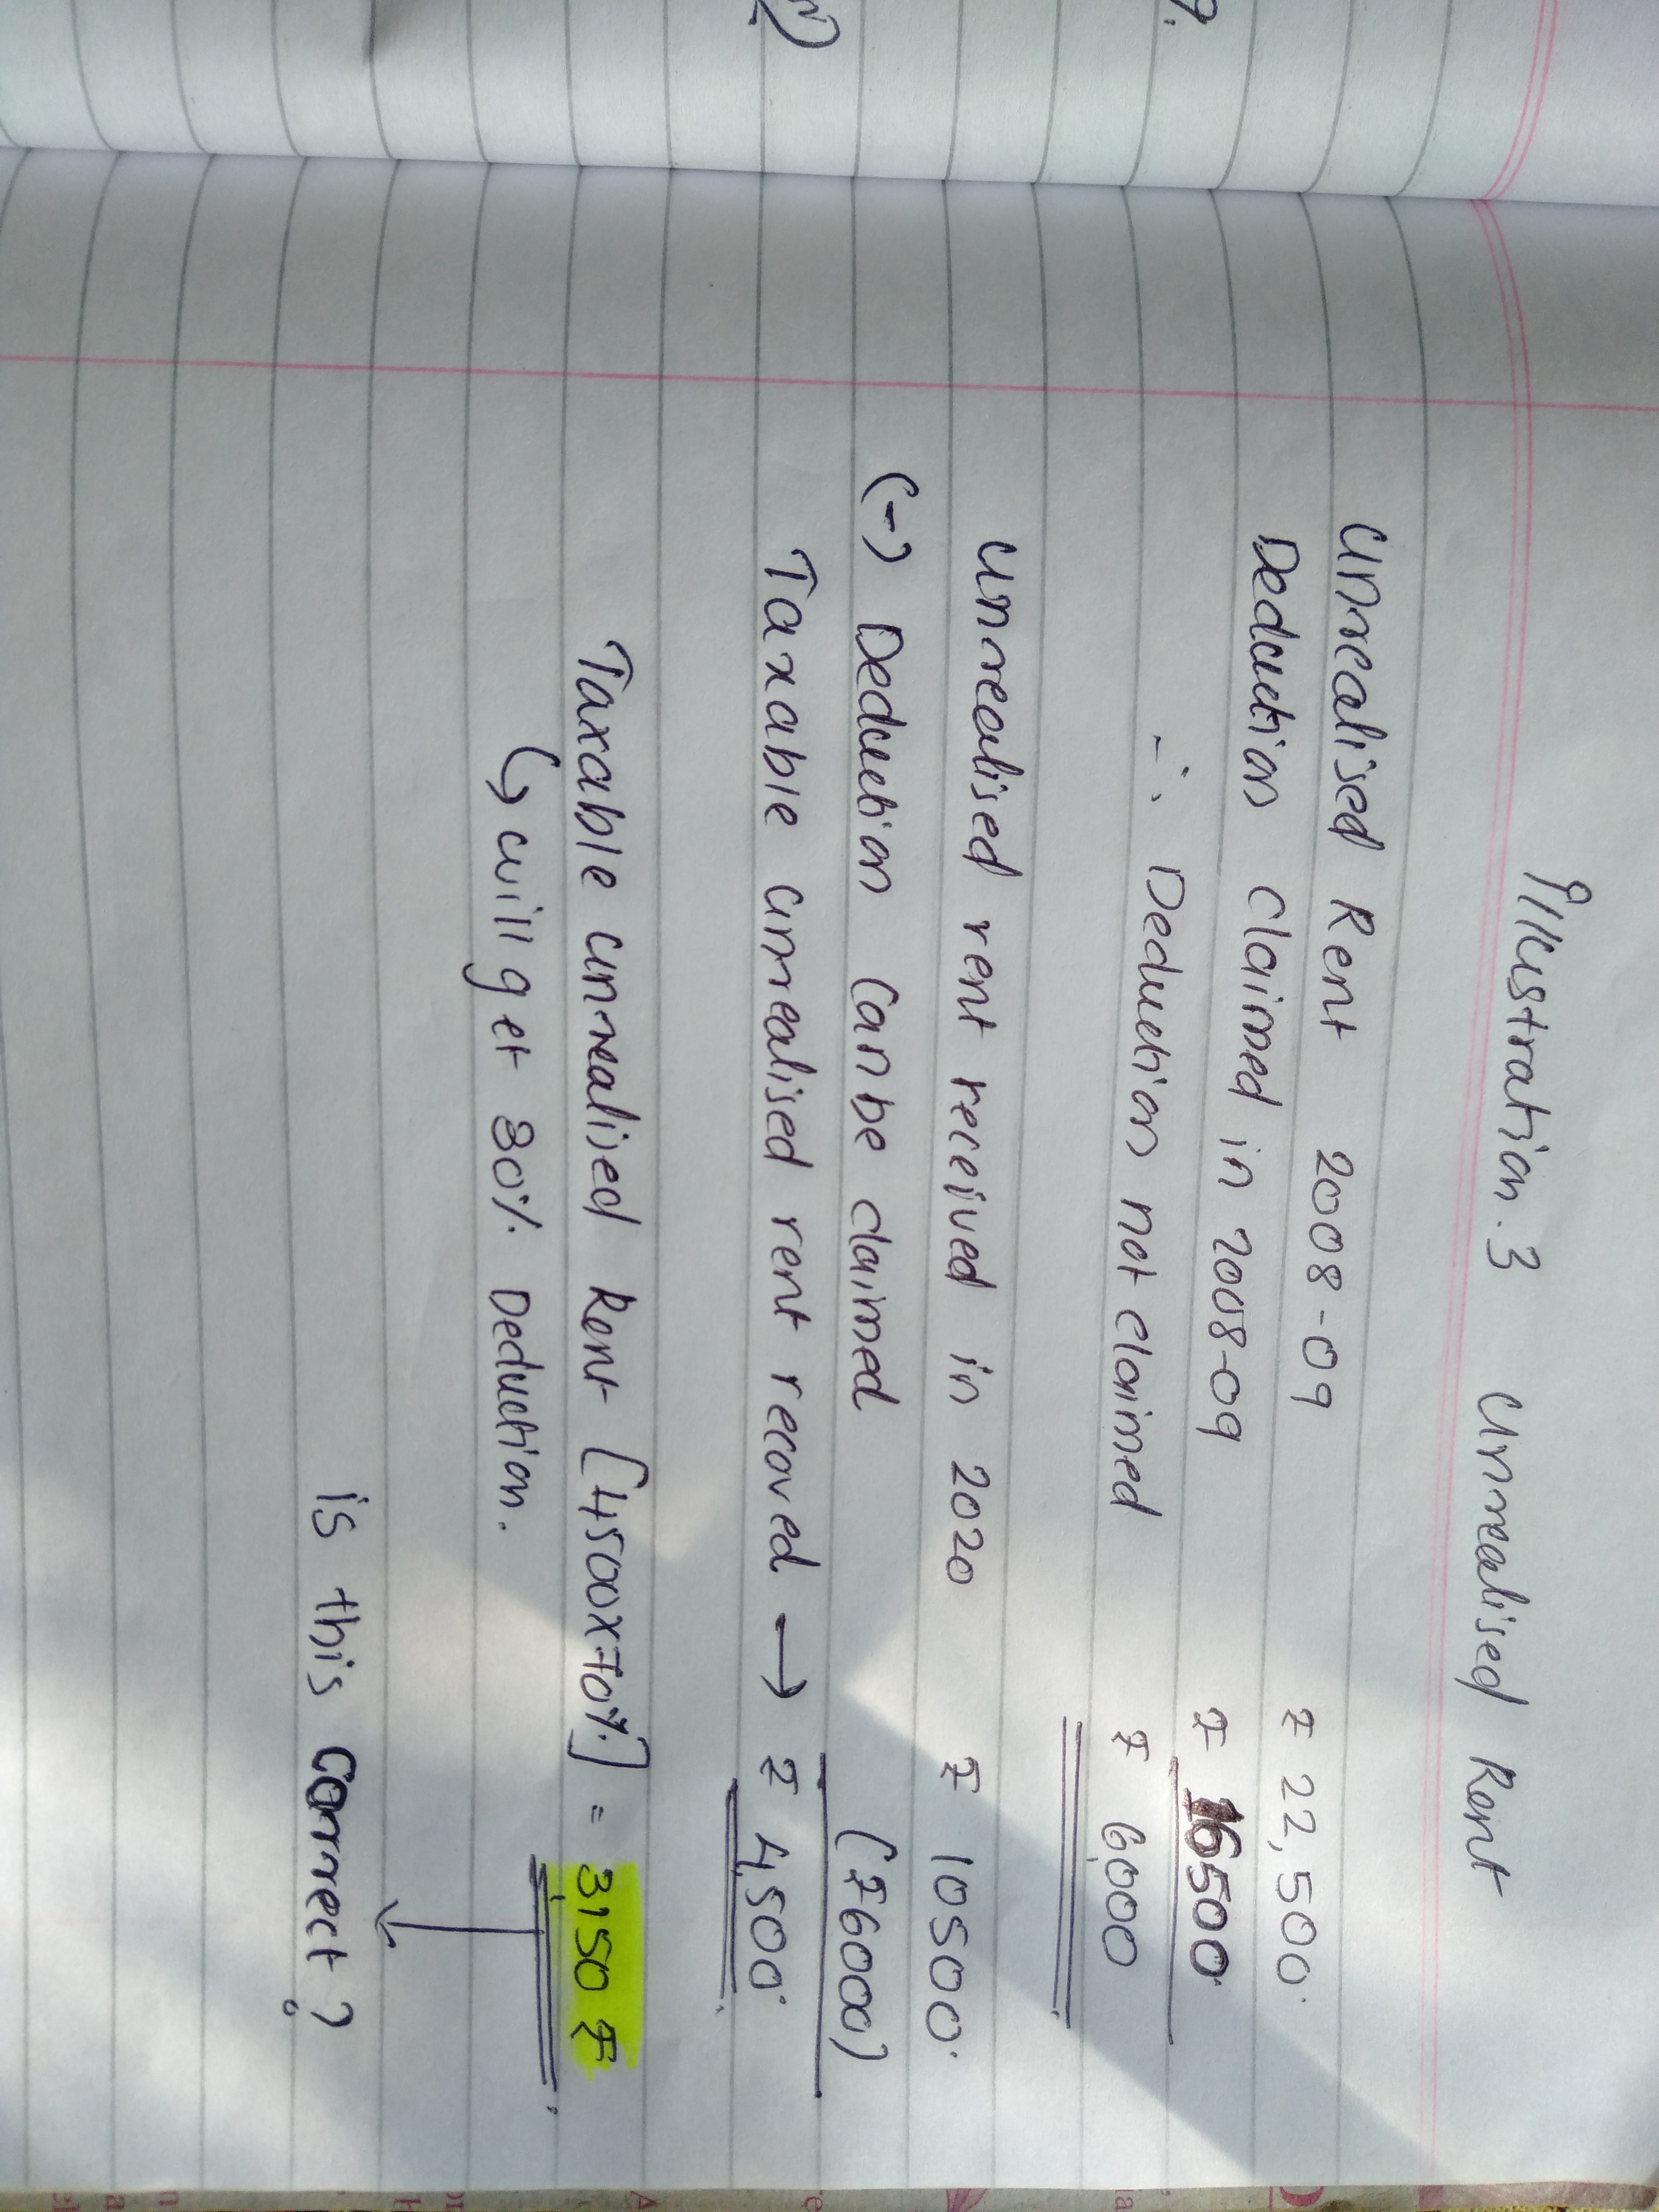 illustration.3 Unrealised Rent
Unrealised Rent 2008-09 ₹ 22,500
Deduction Claimed in 2008-09 ₹ 16500
∴ Deduction not claimed ₹ 6,000
unrealised rent received in 2020 ₹ 10500
(-) Deduction can be claimed (₹6000)
Taxable unrealised rent recoved → ₹ 4,500
Taxable unrealised Rent [4500X70%] = 3,150 ₹
↳ will get 30% Deduction.
is this correct?